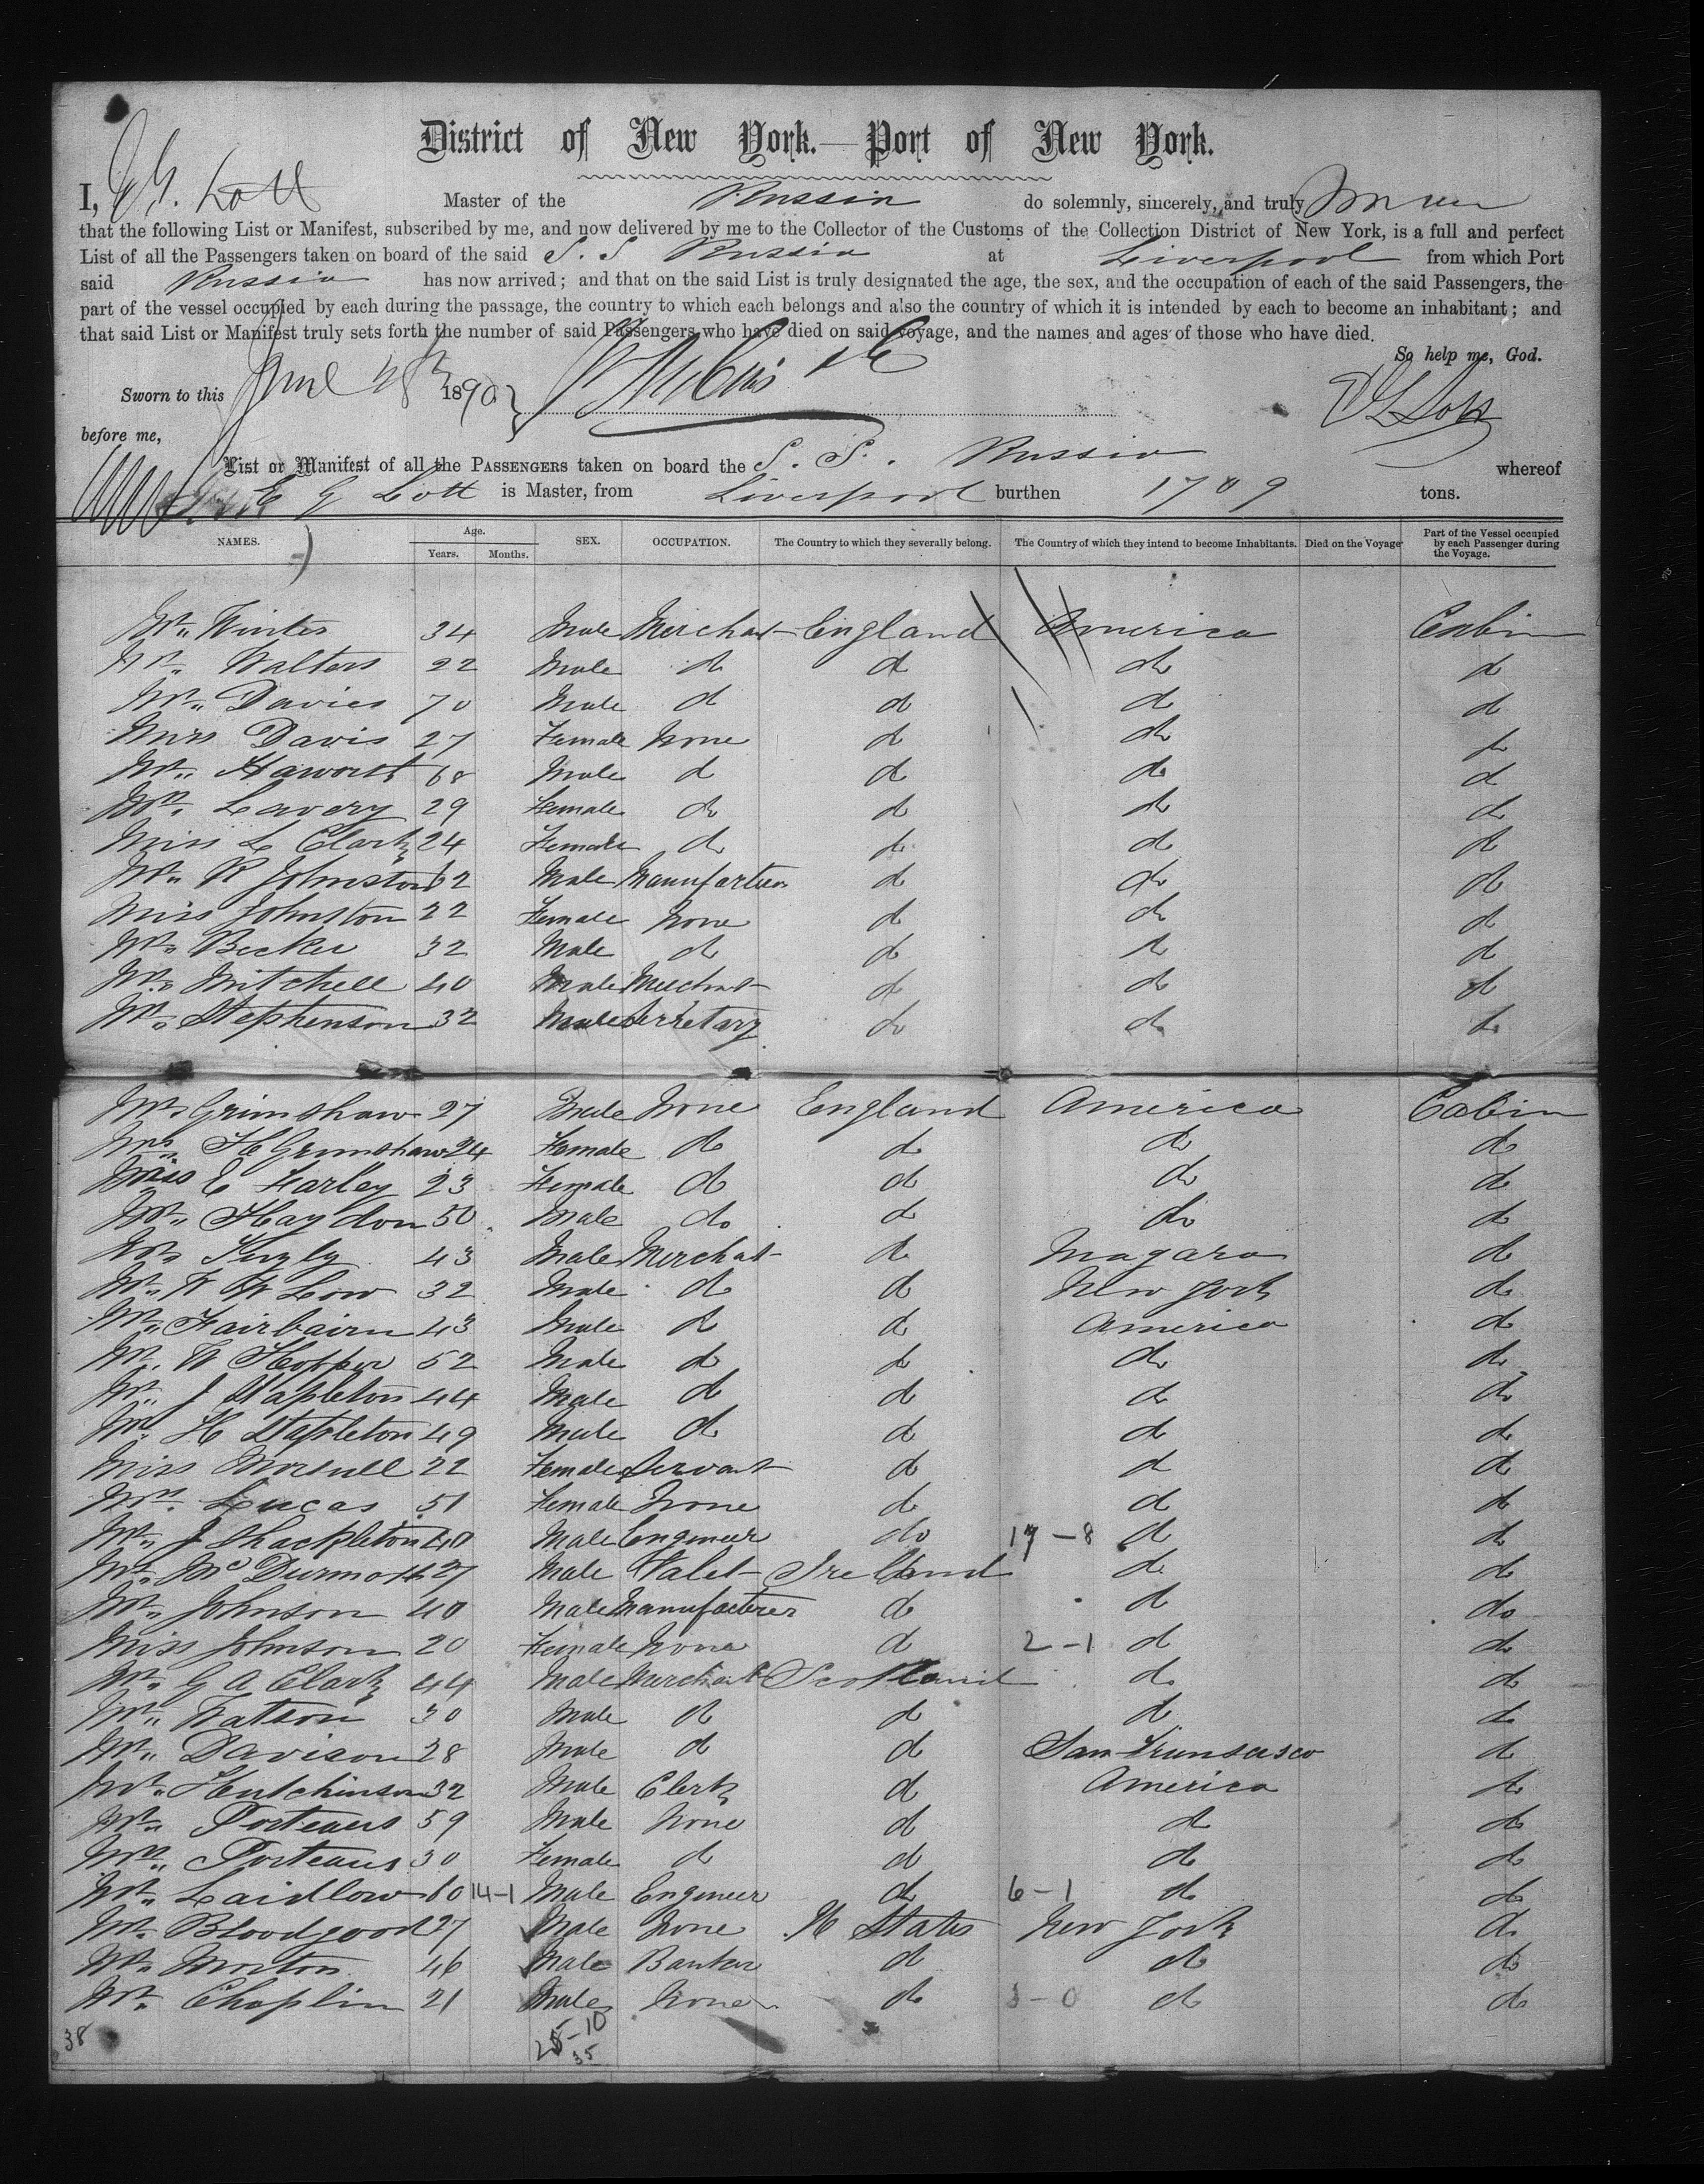 District of New York.—Port of New York.
I, E G. Lott Master of the Russia do solemnly, sincerely, and truly swear
that the following List or Manifest, subscribed by me, and now delivered by me to the Collector of the Customs of the Collection District of New York, is a full and perfect
List of all the Passengers taken on board of the said S. S Russia at Liverpool from which Port
said Russia has now arrived; and that on the said List is truly designated the age, the sex, and the occupation of each of the said Passengers, the
part of the vessel occupied by each during the passage, the country to which each belongs and also the country of which it is intended by each to become an inhabitant; and
that said List or Manifest truly sets forth the number of said Passengers who have died on said voyage, and the names and ages of those who have died.
So help me, God.
Sworn to this June 28th 1870 E G Lott
before me,
List or Manifest of all the PASSENGERS taken on board the S. S. Russia whereof
E G Lott is Master, from Liverpool burthen 1709 tons.
NAMES. Age. Years. Months. SEX. OCCUPATION. The Country to which they severally belong. The Country of which they intend to become Inhabitants. Died on the Voyage Part of the Vessel occupied by each Passenger during the Voyage.
Mr. Winter 34 Male Merchant England America Cabin
Mr. Walters 22 Male d d do d
Mr. Davies 70 Male d d d d
Mrs Davis 27 Female None d do d
Mr. Haworth 68 Male d d do d
Mrs. Lavery 29 Female do d do d
Miss L Clark 24 Female do d d d
Mr. R Johnston 62 Male Manufacturer d do d
Miss Johnston 22 Female None d d d
Mr. Becker 32 Male d d d d
Mr. Mitchell 40 Male Merchant d d d
Mr. Stephenson 32 Male Secretary do do d
Mr. Grimshaw 27 Male None England America Cabin
Mrs. H Grimshaw 24 Female do d do d
Miss E Farley 23 Female do d do d
Mr. Haydon 50 Male do d do d
Mr. 43 Male Merchant d d
Mr. W W Low 32 Male do d New York d
Mr. Fairbairn 43 Male d d America d
Mr. W Hopper 52 Male d d do d
Mr. J Stapleton 44 Male d d d d
Mr. H Stapleton 49 Male d d d d
Miss 22 Female Servant d d d
Mrs. Lucas 51 Female None d d d
Mr. J Shackleton 40 Male Engineer do 17-8 d d
Mr. McDurmott 27 Male Valet Ireland d d
Mr. Johnson 40 Male Manufacturer d d do
Miss Johnson 20 Female None d 2-1 d d
Mr. G A Clark 44 Male Merchant Scotland d d
Mr. Watson 30 Male d d d d
Mr. Davison 28 Male d d San Fransasco d
Mr. Hutchinson 32 Male Clerk d America d
Mr. Porteaus 59 Male None d d d
Mrs. Porteaus 30 Female d d d d
Mr. Laidlow 60 14-1 Male Engineer d 6-1 d d
Mr. Bloodgood 27 Male None U States New York d
Mr. Morton 46 Male Banker d d d
Mr. Chaplin 21 Male None d 3-0 d d
38 25-10
35